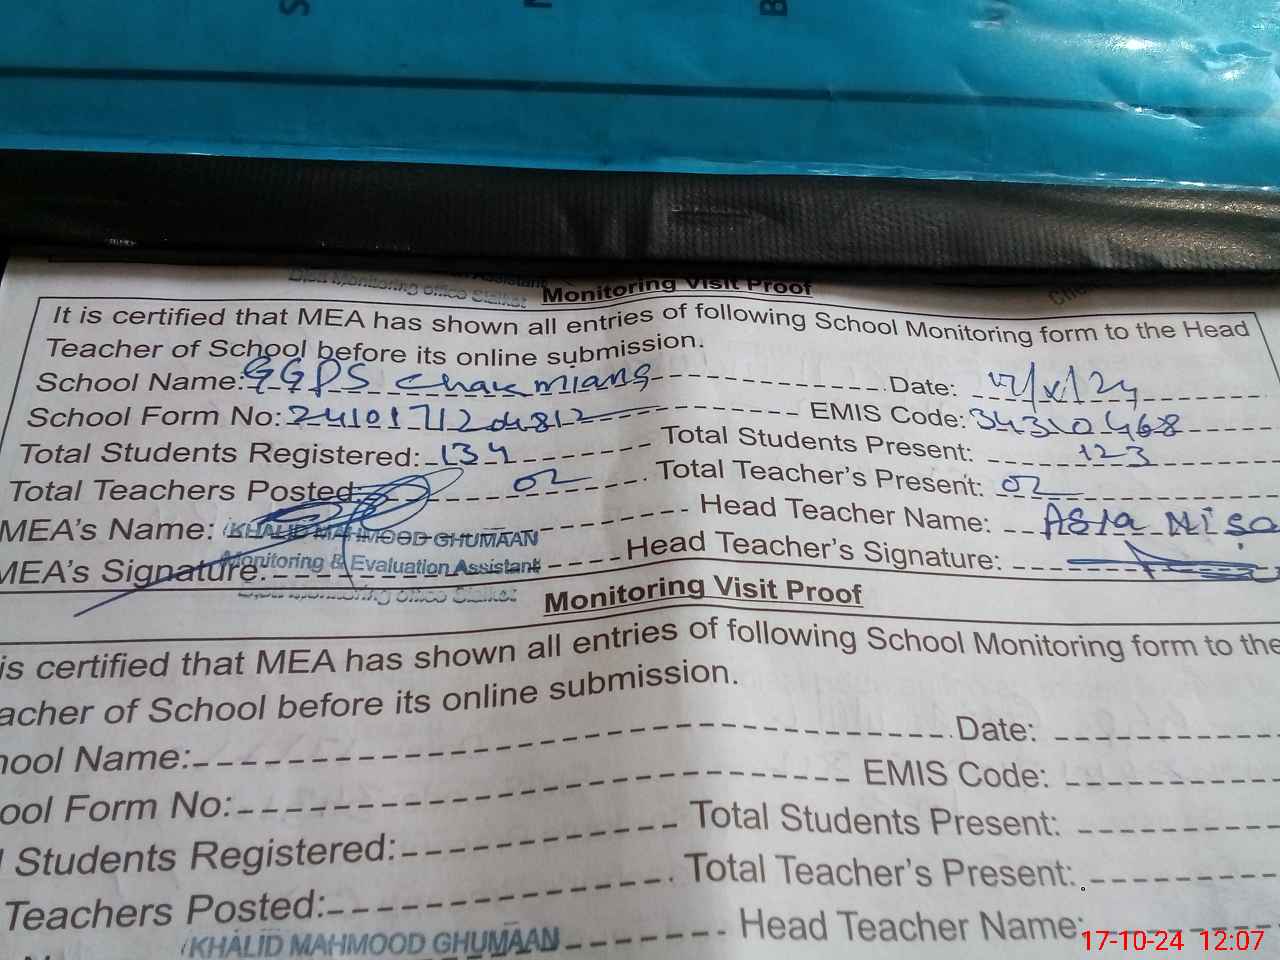 S
B
Monitoring office Sialkot
Monitoring Visit Proof
It is certified that MEA has shown all entries of following School Monitoring form to the Head
Teacher of School before its online submission.
School Name: GGPS Chak miana Date: 17/x/24
School Form No: EMIS Code: 34310468
Total Students Registered: 134 Total Students Present: 123
Total Teachers Posted: 02 Total Teacher's Present: 02
MEA's Name: KHALID MAHMOOD GHUMAAN Head Teacher Name: Asia Nisa
MEA's Signature: Monitoring & Evaluation Assistant Head Teacher's Signature:
Monitoring office Sialkot
Monitoring Visit Proof
is certified that MEA has shown all entries of following School Monitoring form to the
acher of School before its online submission.
hool Name: Date:
ool Form No: EMIS Code:
l Students Registered: Total Students Present:
Teachers Posted: Total Teacher's Present:
KHALID MAHMOOD GHUMAAN Head Teacher Name:
17-10-24 12:07